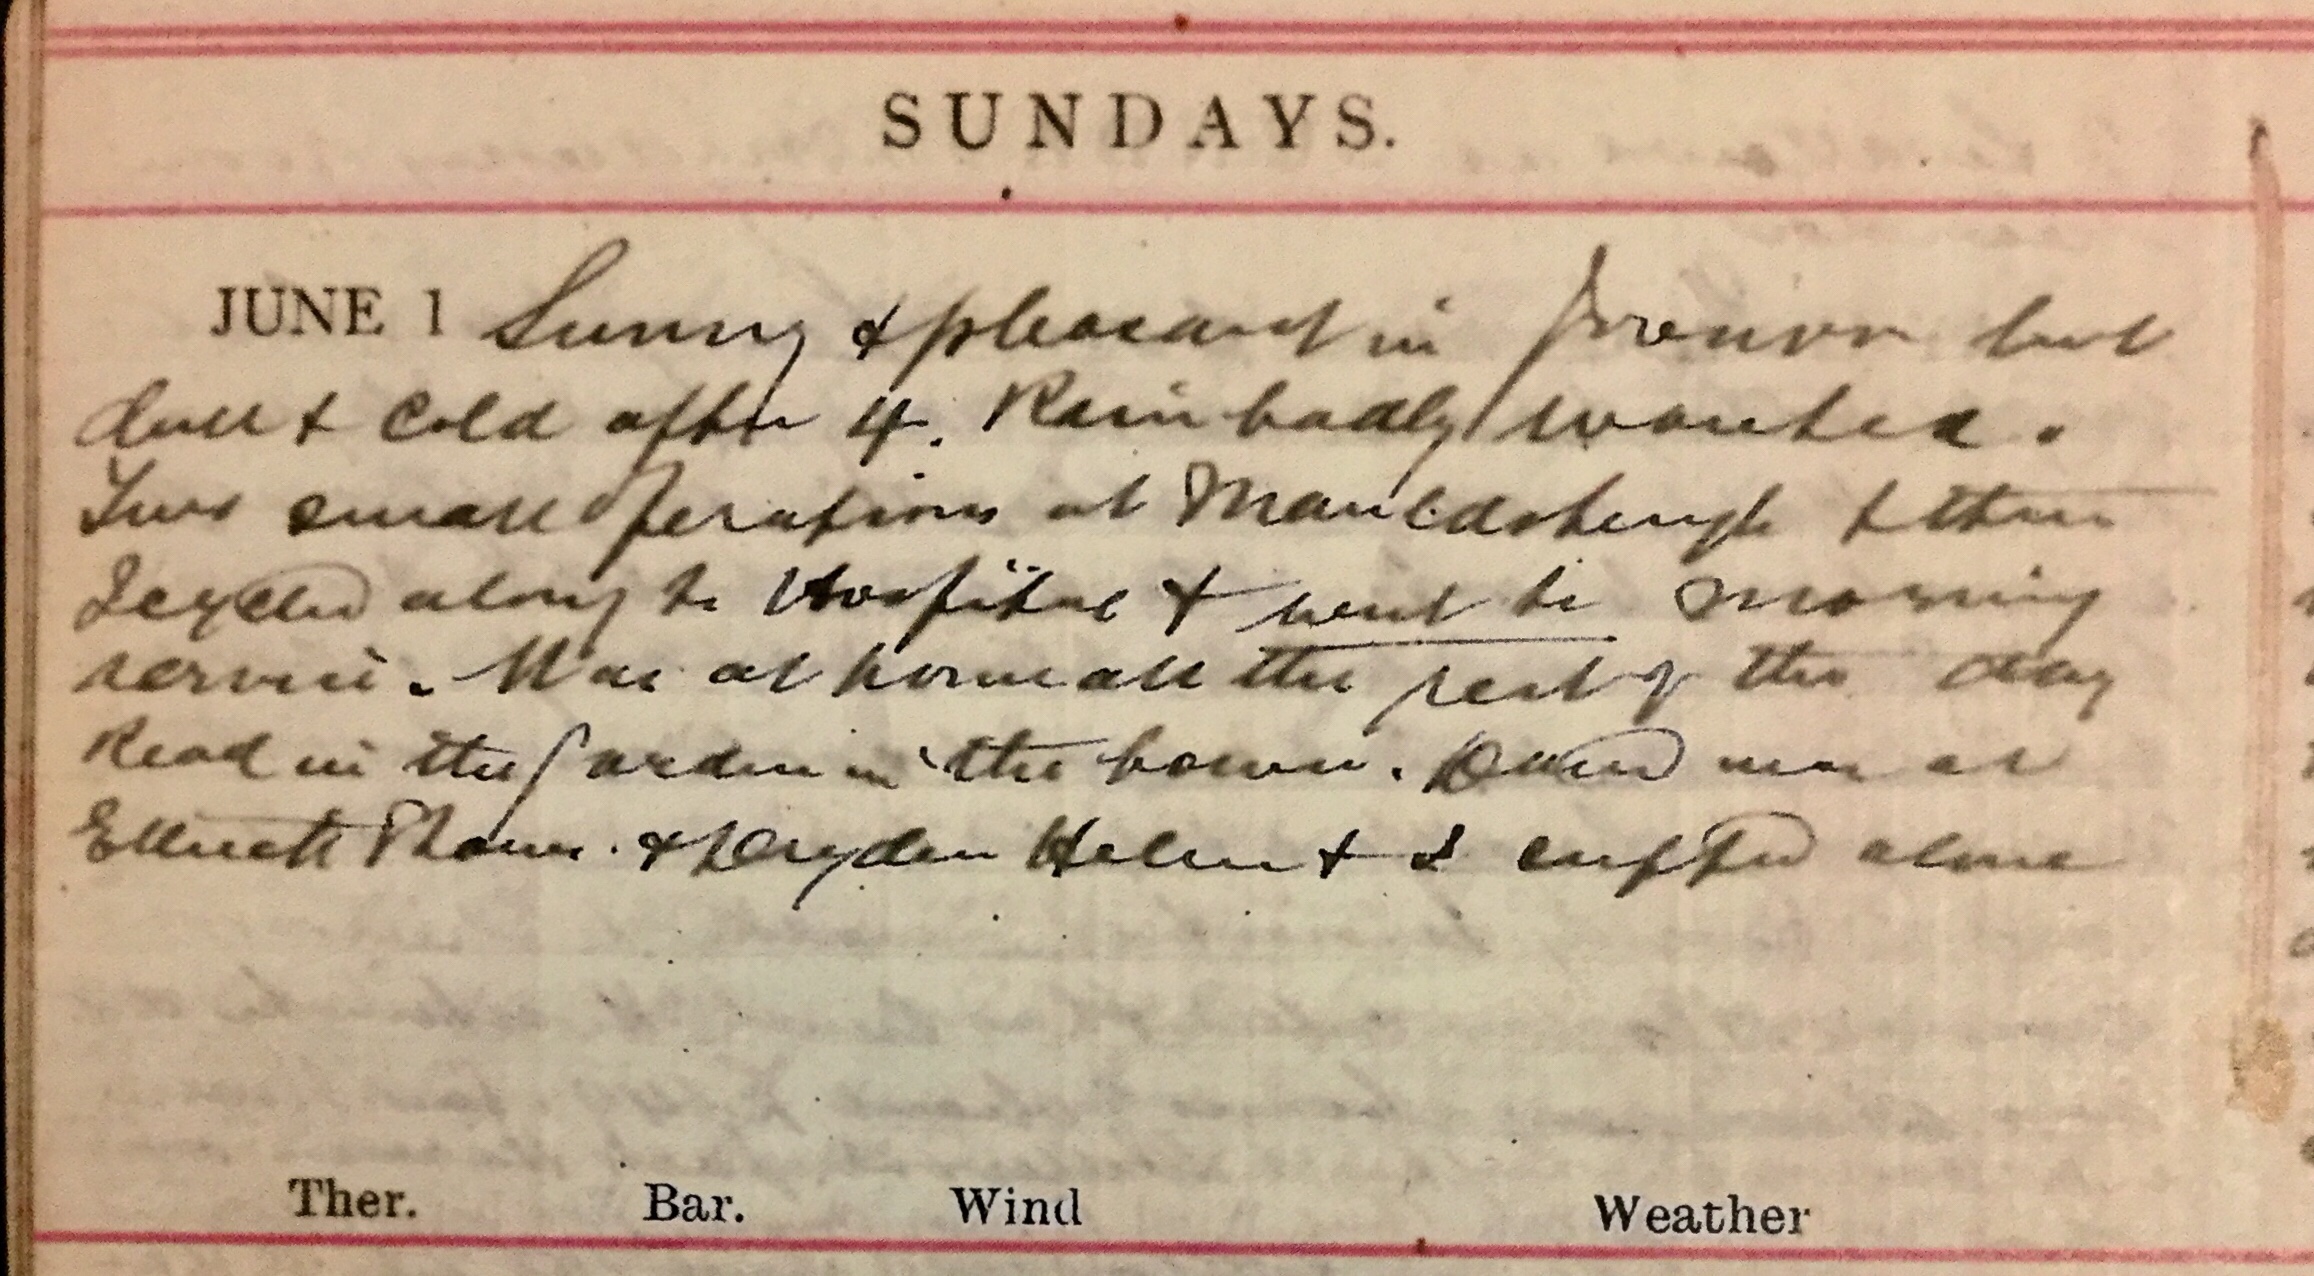 SUNDAYS.
JUNE 1 Sunny & pleasant in forenoon but
dull & cold after 4. Rain badly wanted.
Two small operations at & then
I cycled along to Hospital & went to morning
service. Was at home all the rest of the day
Read in the garden in the . David was at
& Dryden Helen & I supped alone
Ther. Bar. Wind Weather